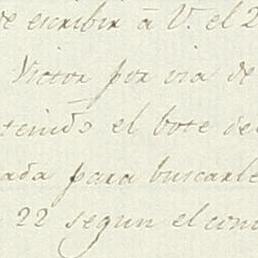 de escribir á V. el 2
Victor por via de
tenido el bote de
ada para buscarle
22 segun el con